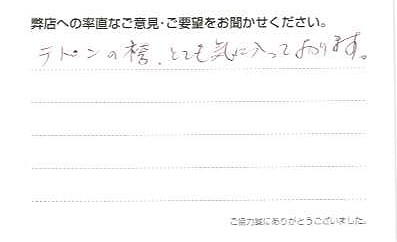 弊店への率直なご意見・ご要望をお聞かせください。
テドンの、とても気に入っております。
ご協力誠にありがとうございました。